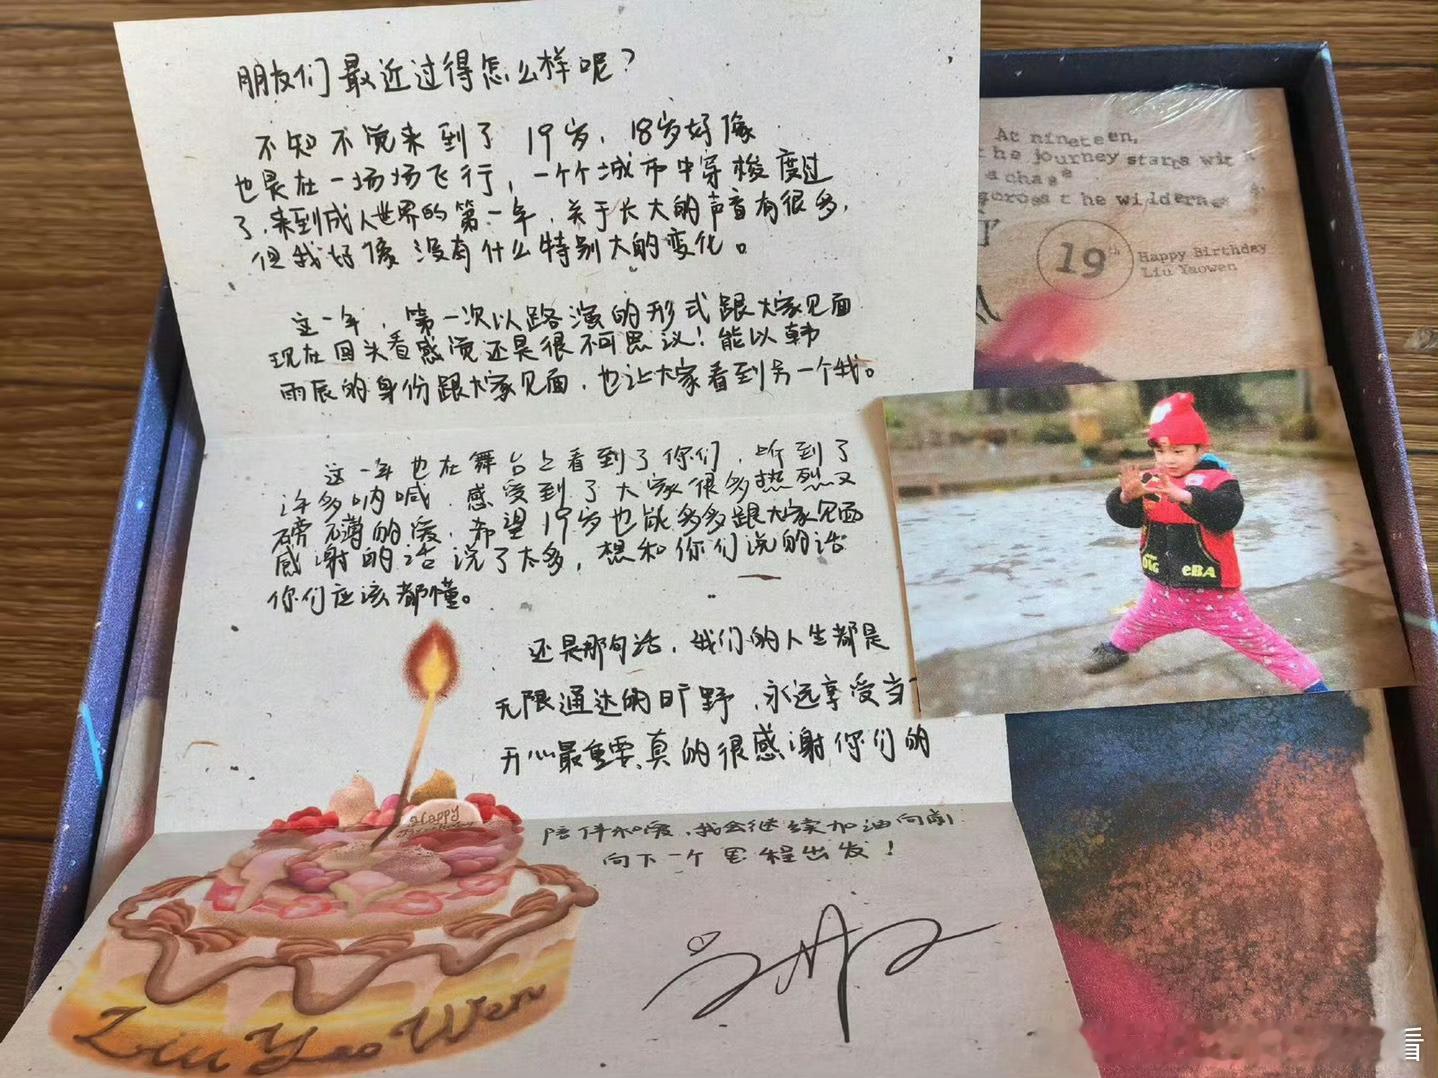 朋友们最近过得怎么样呢？
不知不觉来到了 19岁，18岁好像
也是在一场场飞行，一个个城市中穿梭度过
了，来到成人世界的第一年，关于长大的声音有很多，
但我好像没有什么特别大的变化。
这一年，第一次以路演的形式跟大家见面
现在回头看感觉还是很不可思议！能以韩
雨辰的身份跟大家见面，也让大家看到另一个我。
这一年也在舞台上看到了你们，听到了
许多呐喊，感受到了大家很多热烈又
磅礴的爱，希望19岁也能多多跟大家见面
感谢的话说了太多，想和你们说的话
你们应该都懂。
还是那句话，我们的人生都是
无限通达的旷野，永远享受当
开心最重要，真的很感谢你们的
陪伴和爱，我会继续加油向前
向下一个里程出发！
Happy
Liu Yao Wen
At nineteen,
the journey starts with
a chase
across the wilderness
19th
Happy Birthday
Liu Yaowen
eBA